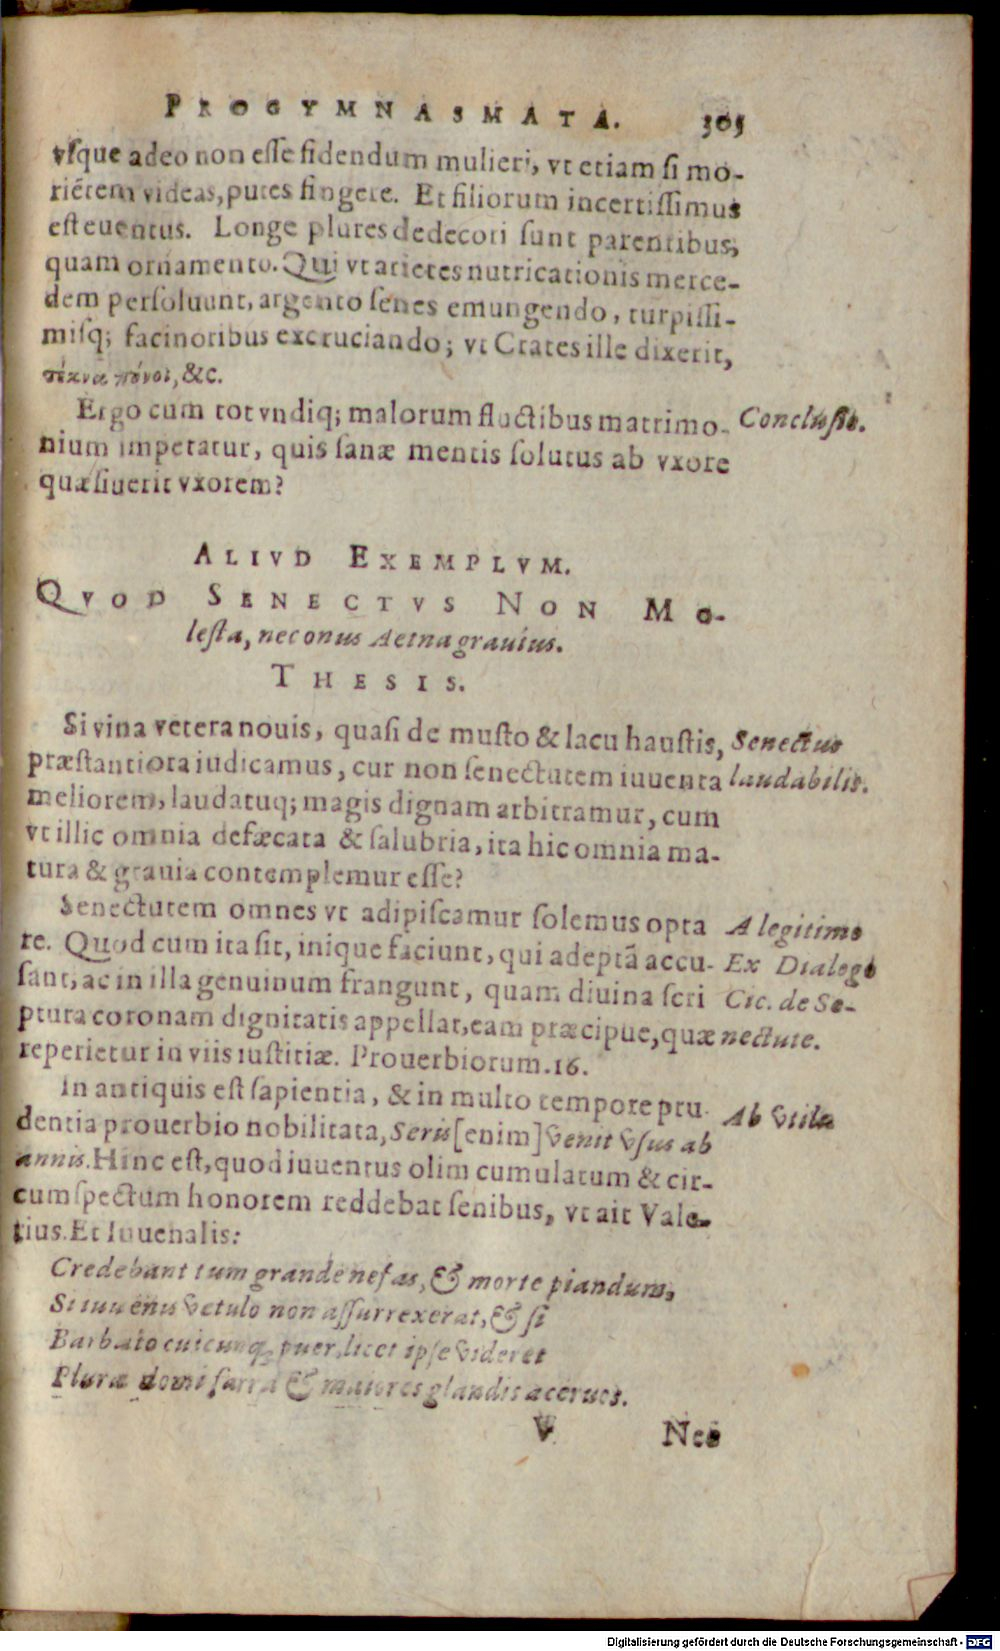 PROGYMNASMATA. 305
vſque adeo non eſſe fidendum mulieri, vt etiam ſi mo-
riẽtem videas, putes fingere. Et filiorum incertiſſimus
eſt euentus. Longe plures dedecori ſunt parentibus,
quam ornamento. Qui vt arietes nutricationis merce-
dem perſoluunt, argento ſenes emungendo, turpiſſi-
miſq; facinoribus excruciando; vt Crates ille dixerit,
τέκνα πόνοι, &c.
Ergo cum tot vndiq; malorum fluctibus matrimo-
Concluſio.
nium impetatur, quis ſanæ mentis ſolutus ab vxore
quæſiuerit vxorem?
ALIVD EXEMPLVM.
QVOD SENECTVS NON MO-
leſta, nec onus Aetna grauius.
THESIS.
Si vina vetera nouis, quaſi de muſto & lacu hauſtis,
Senectus
præſtantiora iudicamus, cur non ſenectutem iuuenta
laudabilis.
meliorem, laudatuq; magis dignam arbitramur, cum
vt illic omnia defæcata & ſalubria, ita hic omnia ma-
tura & grauia contemplemur eſſe?
Senectutem omnes vt adipiſcamur ſolemus opta
A legitimo
re. Quod cum ita ſit, inique faciunt, qui adeptã accu-
Ex Dialogo
ſant, ac in illa genuinum frangunt, quam diuina ſcri
Cic. de Se-
ptura coronam dignitatis appellat, eam præcipue, quæ
nectute.
reperietur in viis iuſtitiæ. Prouerbiorum. 16.
In antiquis eſt ſapientia, & in multo tempore pru-
Ab vtila
dentia prouerbio nobilitata, Seris [enim] venit vſus ab
annis. Hinc eſt, quod iuuentus olim cumulatum & cir-
cumſpectum honorem reddebat ſenibus, vt ait Vale-
rius. Et Iuuenalis:
Credebant tum grande nefas, & morte piandum,
Si iuuenis vetulo non aſſurrexerat, & ſi
Barbato cuicunq; puer, licet ipſe videret
Plura domi farra & maiores glandis aceruos.
V Nec